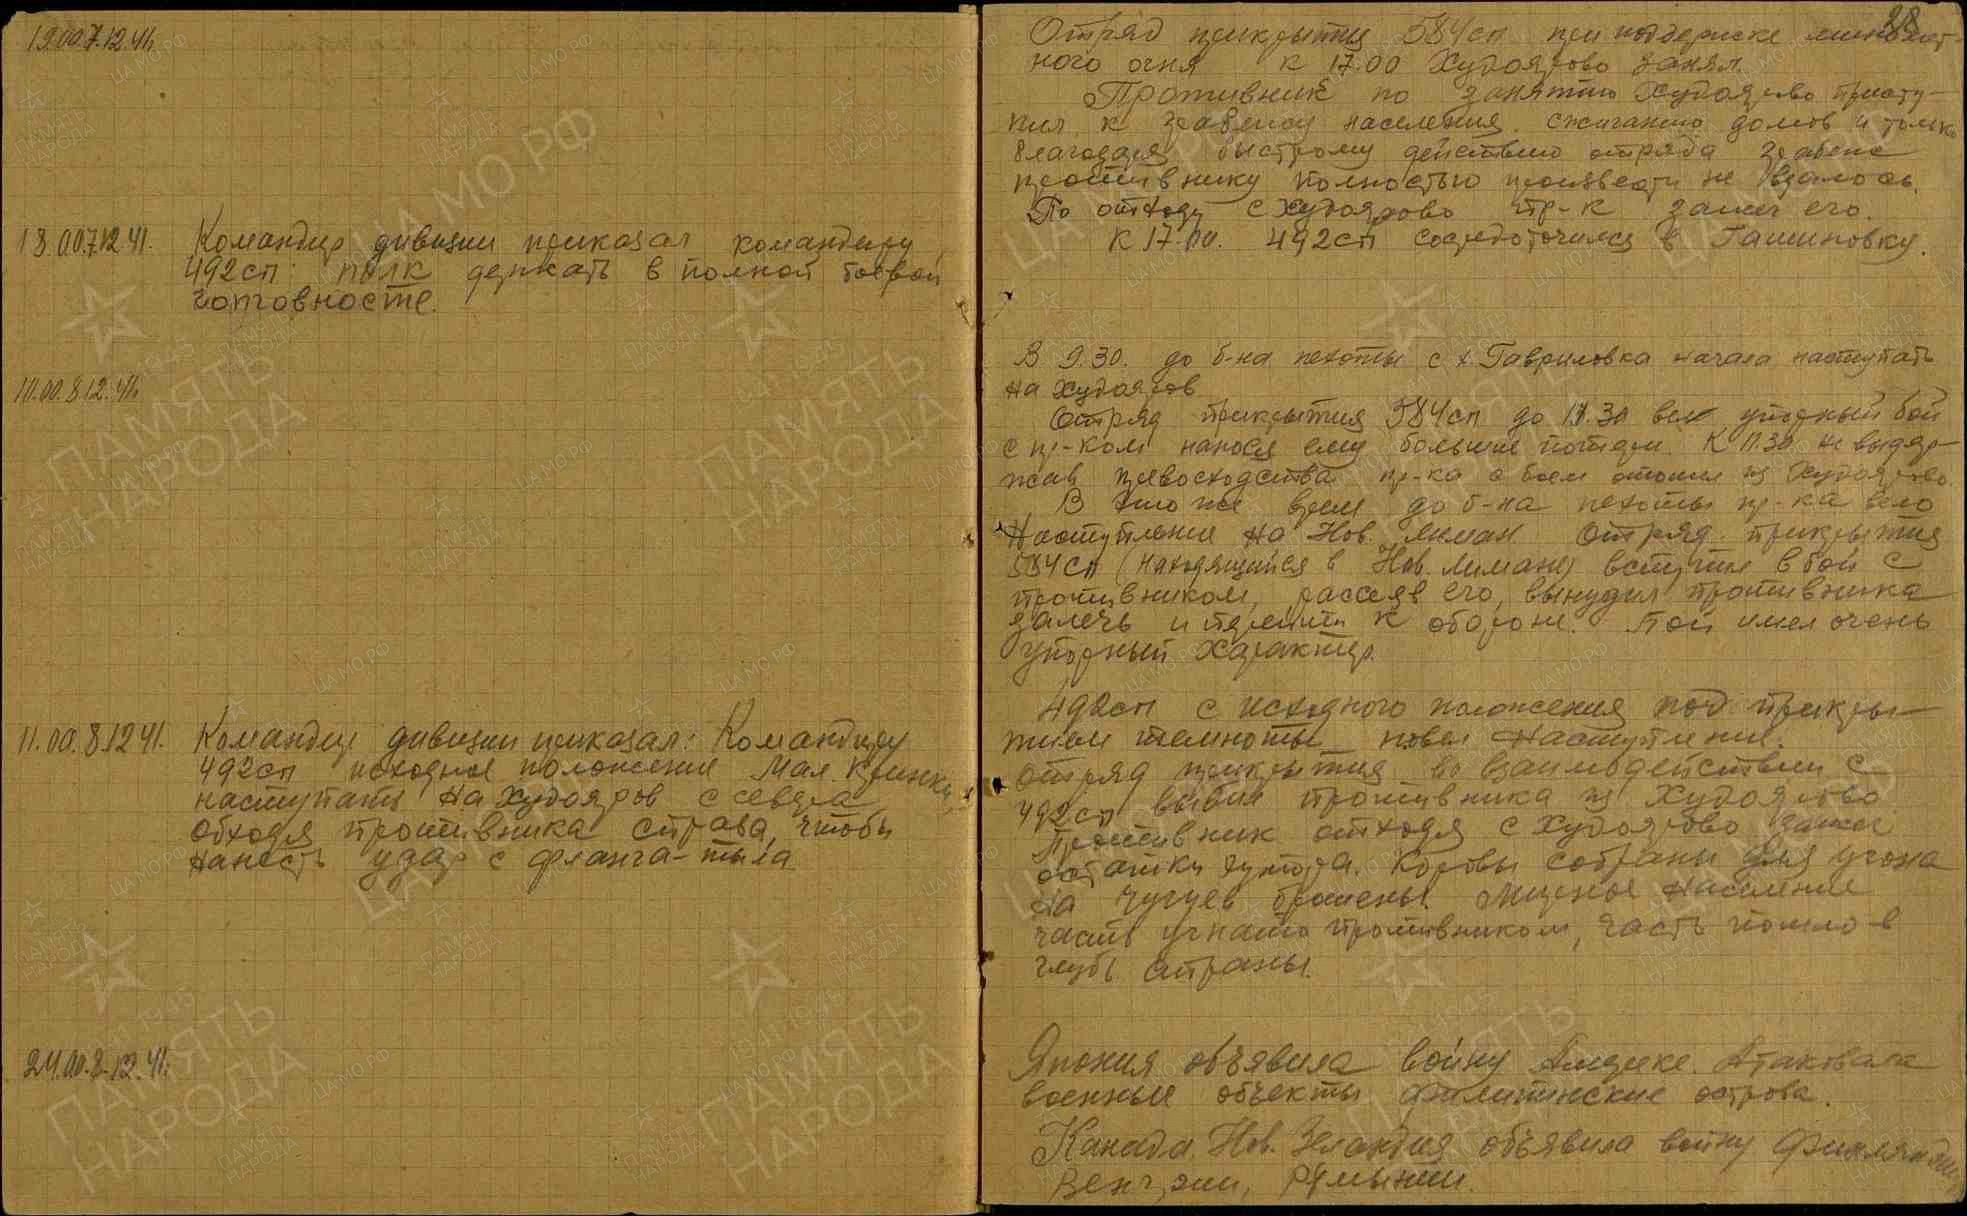 19.00.7.12.41.
13.00.7.12.41. Командир дивизии приказал командиру
492сп: полк держать в полной боевой
готовносте.
11.00.8.12.41.
11.00.8.12.41. Командир дивизии приказал: Командиру
492сп исходное положение Мал. Кринки,
наступать на Худояров с севера
обходя противника справа, чтобы
нанесть удар с фланга-тыла
24.00.8.12.41.
28
Отряд прикрытия 584сп при поддержке миномет-
ного огня к 17.00 Худоярово занял.
Противник по занятию Худоярово присту-
пил к грабежу населения, сжиганию домов и только
благодаря быстрому действию отряда грабежа
противнику полностью произвести не удалось.
По отходу с Худоярово пр-к зажег его.
К 17.00. 492сп сосредоточился в Гашиновку.
В 9.30. до б-на пехоты с х. Гавриловка начала наступать
на Худояров
Отряд прикрытия 584сп до 11.30 вел упорный бой
с пр-ком нанося ему большие потери. К 11.30 не выдер-
жав превосходства пр-ка с боем отошел из Худоярово.
В это же время до б-на пехоты пр-ка вело
наступление на Нов. Лиман Отряд прикрытия
584сп (находящийся в Нов. Лиман) вступил в бой с
противником, рассеяв его, вынудил противника
залечь и перейти к обороне. Бой имел очень
упорный характер.
492сп с исходного положения под прикры-
тием темноты повел наступление.
Отряд прикрытия во взаимодействии с
492сп выбил противника из Худоярово
Противник отходя с Худоярово зажег
остатки хутора. Коровы собраны для угона
на Чугуев брошены. Мирное население
часть угнато противником, часть пошло в
глубь страны.
Япония объявила войну Америке. Атаковала
военные объекты Филипинские острова.
Канада, Нов. Зеландия объявила войну Финляндии
Венгрии, Румынии.
ПАМЯТЬ
НАРОДА
1941-1945
ЦАМО РФ